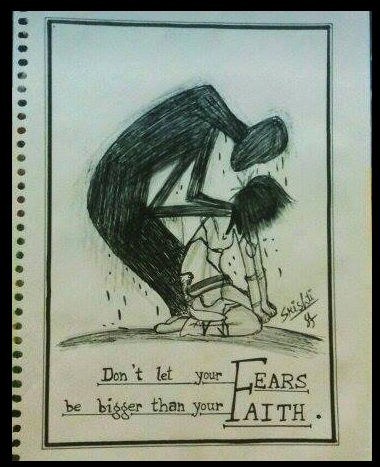 Srishti
Don't let your FEARS
be bigger than your FAITH.